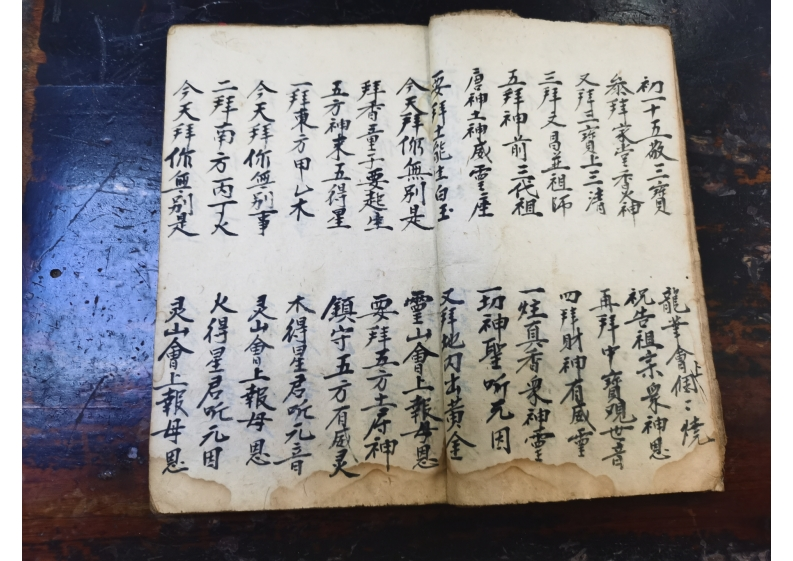 初一十五敬三寶 龍華會上個々燒
叅拜家堂香火神 祝告祖宗衆神恩
又拜三寶上三清 再拜中寶观世音
三拜文昌並祖师 四拜財神有威霊
五拜神前三代祖 一炷真香衆神霊
唐神土神威霊座 一切神聖听元因
要拜土能生白玉 又拜地内出黃金
今天拜你無別是 靈山會上報母恩
拜香童子要起坐 要拜五方土府神
五方神来五得星 鎮守五方有威灵
一拜東方甲乙木 木得星君听元音
今天拜你無別事 灵山會上報母恩
二拜南方丙丁火 火得星君听元因
今天拜你無別是 灵山會上報母恩